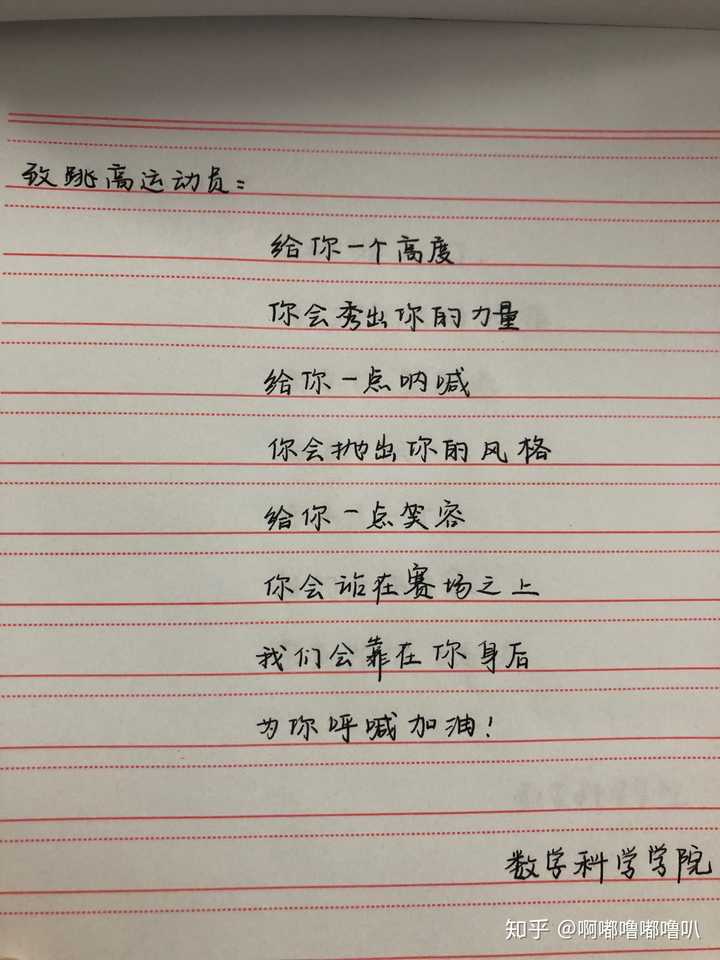 致跳高运动员:
给你一个高度
你会秀出你的力量
给你一点呐喊
你会抛出你的风格
给你一点笑容
你会站在赛场之上
我们会靠在你身后
为你呼喊加油!
数学科学学院
知乎 @啊嘟噜嘟噜叭